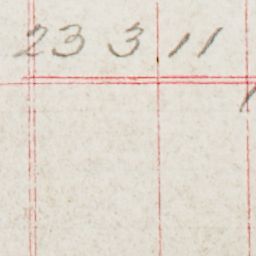 23 3 11